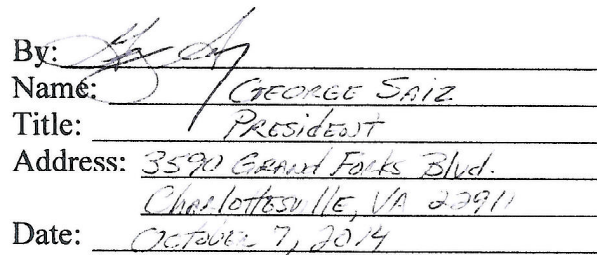 By:
Name: GEORGE SAIZ
Title: PRESIDENT
Address: 3590 GRAND FORKS Blvd.
CharlottesvillE, VA 22911
Date: OCTOBER 7, 2014